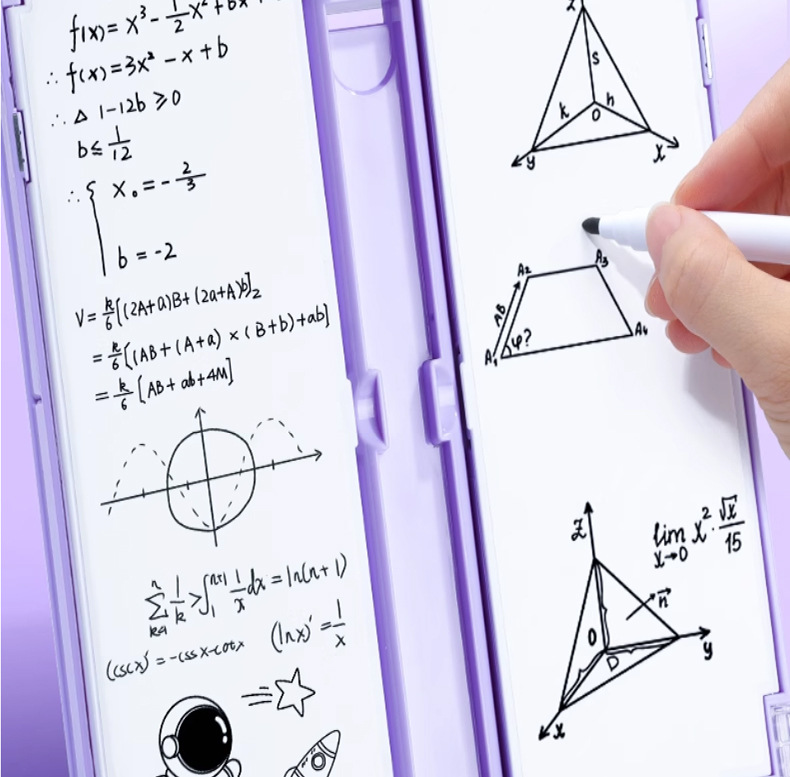 f(x) = x³ - 1/2 x² + bx +
∴ f(x) = 3x² - x + b
∴ Δ 1-12b ≥ 0
b ≤ 1/12
∴ { x₀ = - 2/3
b = -2
V = k/6 [(2A+a)B + (2a+A)b]₂
= k/6 [(AB + (A+a) × (B+b) + ab]
= k/6 [AB + ab + 4M]
n
∑ 1/k > ∫₁ⁿ⁺¹ 1/x dx = ln(n+1)
(lnx)' = 1/x
z
S
k
h
O
y
x
A₂
A₃
AB
φ?
A₁
A₄
lim x² · √x/15
x→0
z
n⃗
O
D
y
x